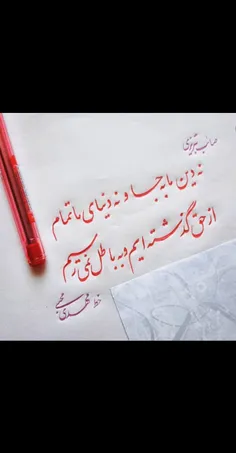 صائب تبریزی
نه دین ما به جا و نه دنیای ما تمام
از حق گذشته ایم و به باطل نمی رسیم
خط مهدی